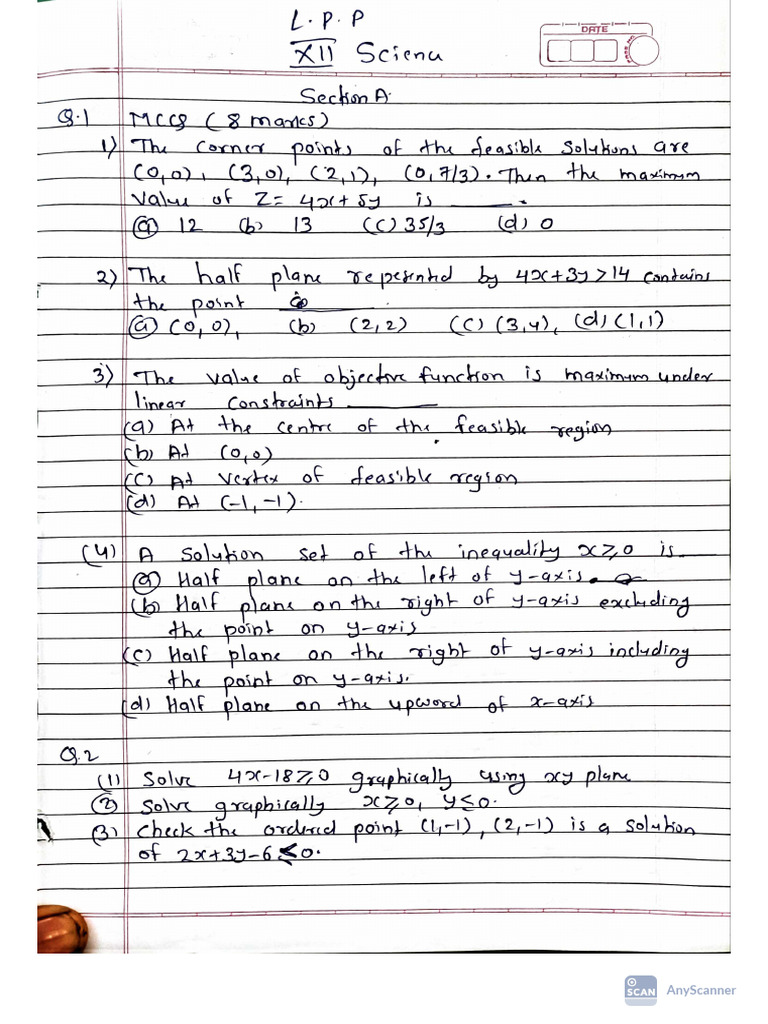 L.P.P
XII Scienu
DATE
Section A.
Q.1 MCQ (8 marks)
1) The corner points of the feasible solutions are
(0,0), (3,0), (2,1), (0,7/3). Then the maximum
value of Z = 4x+5y is ______.
(a) 12 (b) 13 (c) 35/3 (d) 0
2) The half plane repesented by 4x+3y>14 contains
the point ______.
(a) (0,0), (b) (2,2) (c) (3,4), (d) (1,1)
3) The value of objective function is maximum under
linear constraints ______
(a) At the centre of the feasible region
(b) At (0,0)
(c) At vertex of feasible region
(d) At (-1,-1).
(4) A solution set of the inequality x≥0 is
(a) Half plane on the left of y-axis.
(b) Half plane on the right of y-axis excluding
the point on y-axis
(c) Half plane on the right of y-axis including
the point on y-axis.
(d) Half plane on the upword of x-axis
Q.2
(1) Solve 4x-18≥0 graphically using xy plane
(2) Solve graphically x≥0, y≤0.
(3) Check the ordered point (1,-1), (2,-1) is a solution
of 2x+3y-6≤0.
SCAN AnyScanner